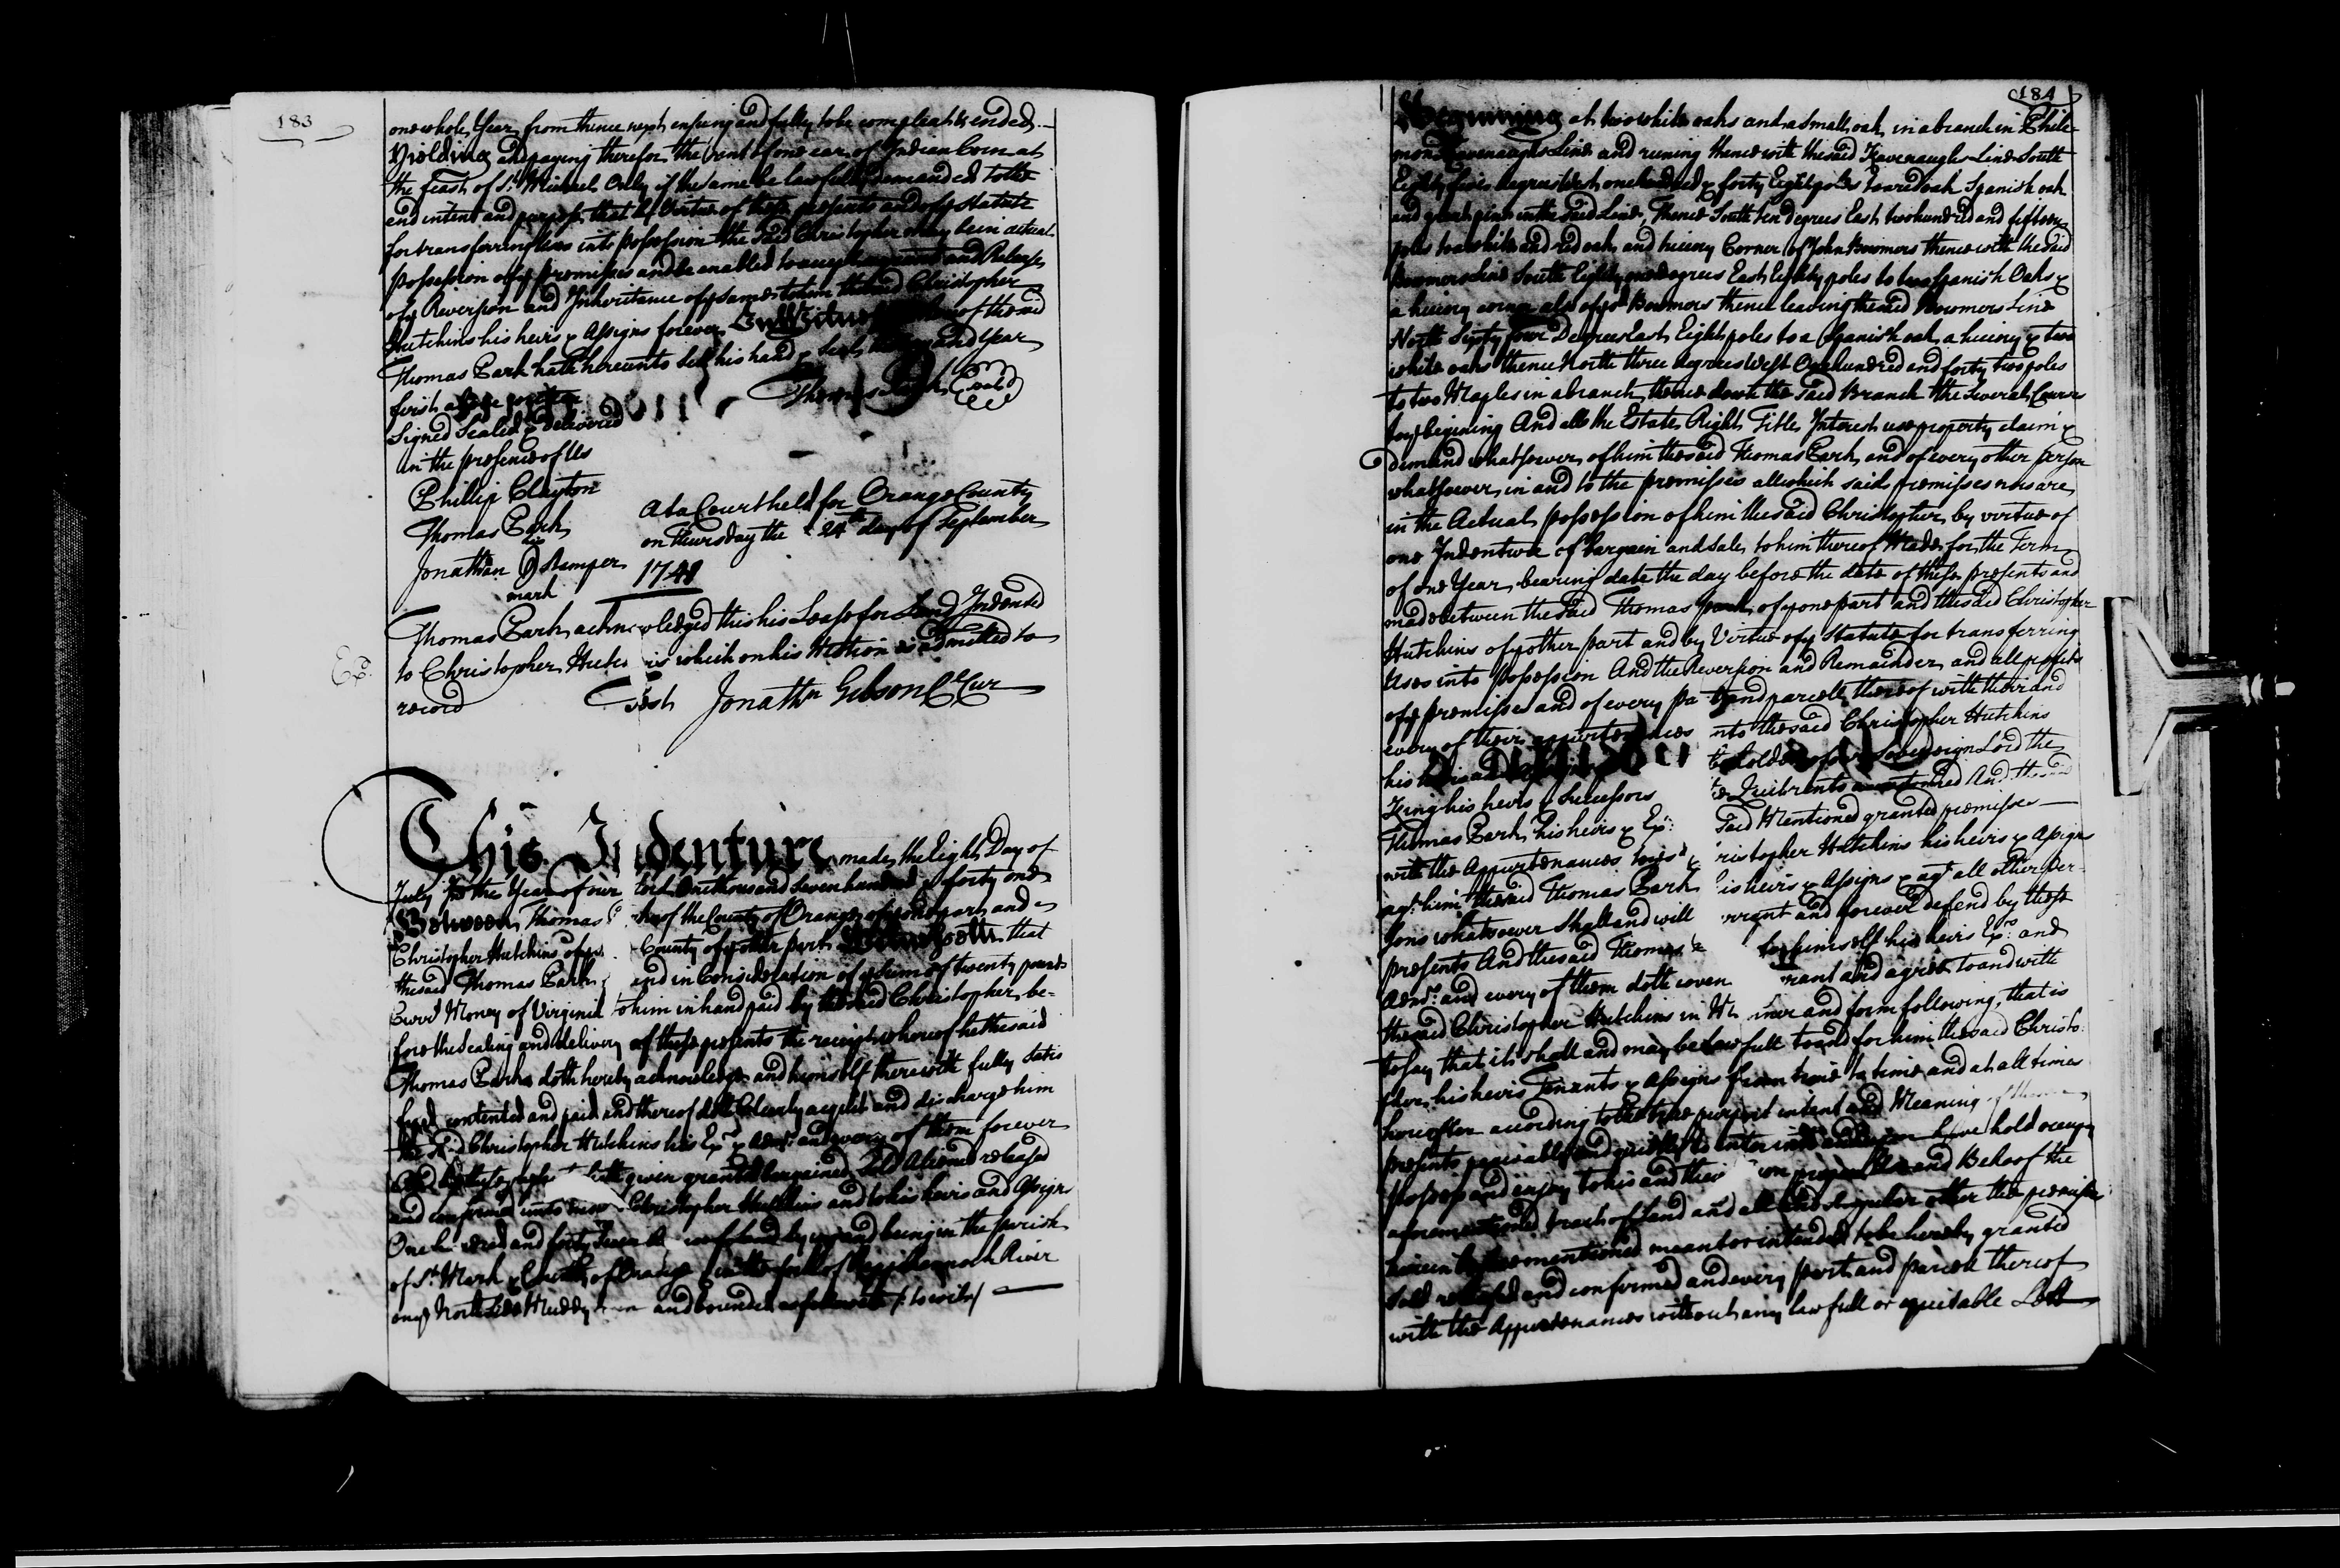 183
one whole Year from thence next ensuing and fully to be compleat & ended
Yielding and paying therefor the rent of one ear of Indian Corn at
the feast of St. Michael Only if the same be lawfully Demanded to the
end intent and purpose that by Virtue of these presents and of y Statute
for transferring uses into possession the said Christopher may be in actual
possession of y premisses and be enabled to accept a grant and Release
of y Reversion and Inheritance of y same to him the said Christopher
Hutchins his heirs & Assigns forever In Witness whereof the said
Thomas Park hath hereunto sett his hand & Seal the Day and Year
first above written
Thomas Park Seald
Signed Sealed & Delivered
in the presence of Us
Phillip Clayton
Thomas Park
Jonathan his Stamper
mark
At a Court held for Orange County
on Thursday the 24th day of September
1741
Thomas Park acknowledged this his Lease for Land Indented
to Christopher Hutc ns which on his Motion is admitted to
record
Test Jonathn Gibson Cl Cur
Ex.
This Indenture made the Eight Day of
July In the Year of our Lord One thousand Seven hundred & forty one
Between Thomas P rk of the County of Orange of y one part and
Christopher Hutchins of y s County of y other part Witnesseth that
the said Thomas Park and in Consideration of y sum of twenty pounds
Curr.t Money of Virginia to him in hand paid by the said Christopher be-
fore the Sealing and delivery of these presents the receipt whereof he the said
Thomas Park doth hereby acknowledge and himself therewith fully Satis
fied contented and paid and thereof doth Clearly acquit and discharge him
the Sd Christopher Hutchins his Exrs & Admrs and every of them forever
hath given granted bargained Sold Aliened released
and confirmed unto Christopher Hutchins and to his heirs and Assigns
One hundred and forty Seven A of land lying and being in the parish
of St. Mark & County of Orange in the fork of Rappahannock River
on y North Side Muddy run and bounded as followeth (to wit)
184
Beginning at two white oaks and a small oak in a branch in Phile-
mon Kavenaughs Line and runing thence with the said Kavenaughs Line South
Eighty five degrees West one hundred & forty Eight poles to a red oak Spanish oak
and in the said Line, Thence South ten degrees East two hundred and fifteen
poles to a white and red oak and hicory Corner of John Bowmers thence with the said
Bowmers Line South Eighty degrees East Eighty poles to two Spanish Oaks &
a hicory corner also of sd Bowmers thence leaving the said Bowmers Line
North Sixty four Degrees East Eight poles to a Spanish oak a hicory & two
white oaks thence North three degrees West One hundred and forty two poles
to two Maples in a branch thence down the said Branch the Several Courses
to y begining And all the Estate Right Title Interest use property claim &
demand whatsoever of him the said Thomas Park and of every other person
whatsoever in and to the premisses all which said premisses now are
in the Actual possession of him the said Christopher by virtue of
one Indenture of bargain and sale to him thereof Made for the Term
of one Year bearing date the day before the date of these presents and
made between the said Thomas Park of y one part and the said Christopher
Hutchins of y other part and by Virtue of y Statute for transferring
Uses into possession And the Reversion and Remainder and all profits
of y premisses and of every pa t and parcell thereof with their and
every of their appurtenances nto the said Christopher Hutchins
his heirs and to be holden of our Sovereign Lord the
King his heirs & Successors Quitrents accustomed And the said
Thomas Park his heirs & Exrs said Mentioned granted premisses
with the Appurtenances ristopher Hutchins his heirs & Assigns
agt. him the said Thomas Park is heirs & Assigns & agt. all other Per-
sons whatsoever Shall and will rrant and forever defend by these
presents And the said Thomas for himself his heirs Exrs and
Admrs and every of them doth coven nant and agree to and with
the said Christopher Hutchins in M nner and form following, that is
to say that it shall and may be lawfull to and for him the said Christo-
pher his heirs Tenants & Assigns from time to time and at all times
hereafter according to the true purport intent and Meaning of these
presents peaceably and quietly to enter into and upon have hold occupy
possess and enjoy to his and their own proper Use and Behoof the
aforementioned tract of Land and all and singular other the premisses
herein before mentioned meant or intended to be hereby granted
Sold released and confirmed and every part and parcell thereof
with the Appurtenances without any lawfull or equitable Lett